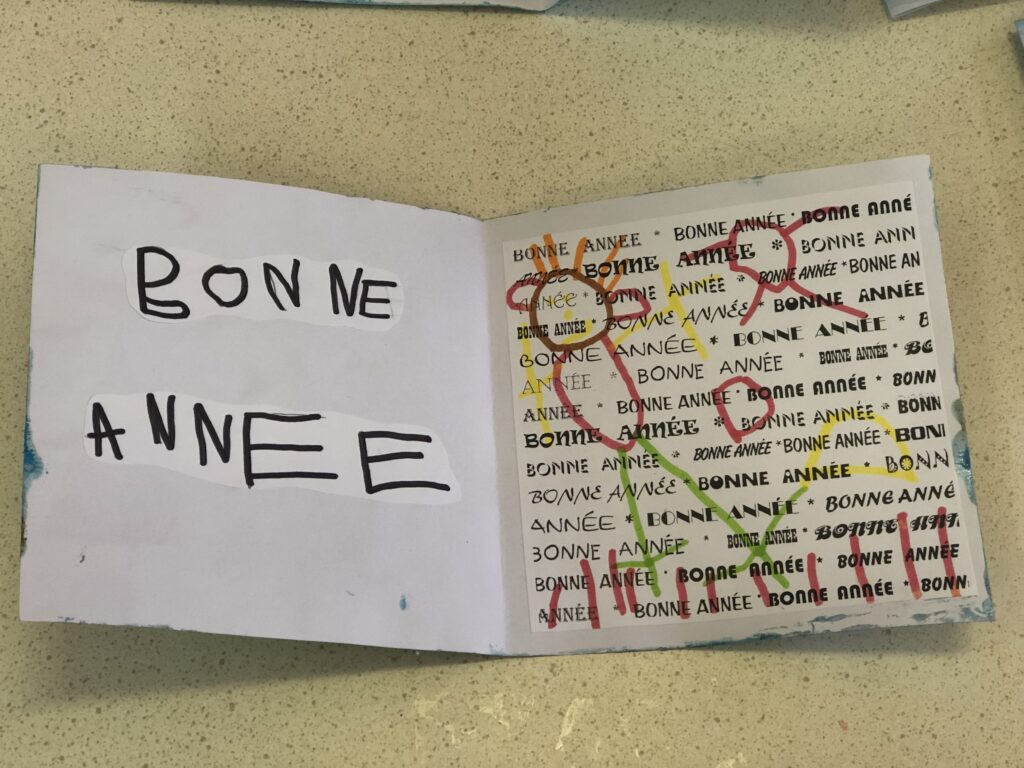 BONNE
ANNEE
BONNE ANNÉE * BONNE ANNÉE * BONNE ANNÉ
ANNÉE * BONNE ANNÉE * BONNE ANN
ANNÉE * BONNE ANNÉE * BONNE ANNÉE * BONNE AN
BONNE ANNÉE * BONNE ANNÉE * BONNE ANNÉE
BONNE ANNÉE * BONNE ANNÉE * B
ANNÉE * BONNE ANNÉE * BONNE ANNÉE * BO
ANNÉE * BONNE ANNÉE * BONNE ANNÉE * BONN
BONNE ANNÉE * BONNE ANNÉE * BONN
BONNE ANNÉE * BONNE ANNÉE * BONNE ANNÉE * BON
BONNE ANNÉE * BONNE ANNÉE * BONN
ANNÉE * BONNE ANNÉE * BONNE ANNÉ
BONNE ANNÉE * BONNE ANNÉE * BONNE ANN
BONNE ANNÉE * BONNE ANNÉE * BONNE ANNÉE
ANNÉE * BONNE ANNÉE * BONNE ANNÉE * BONN